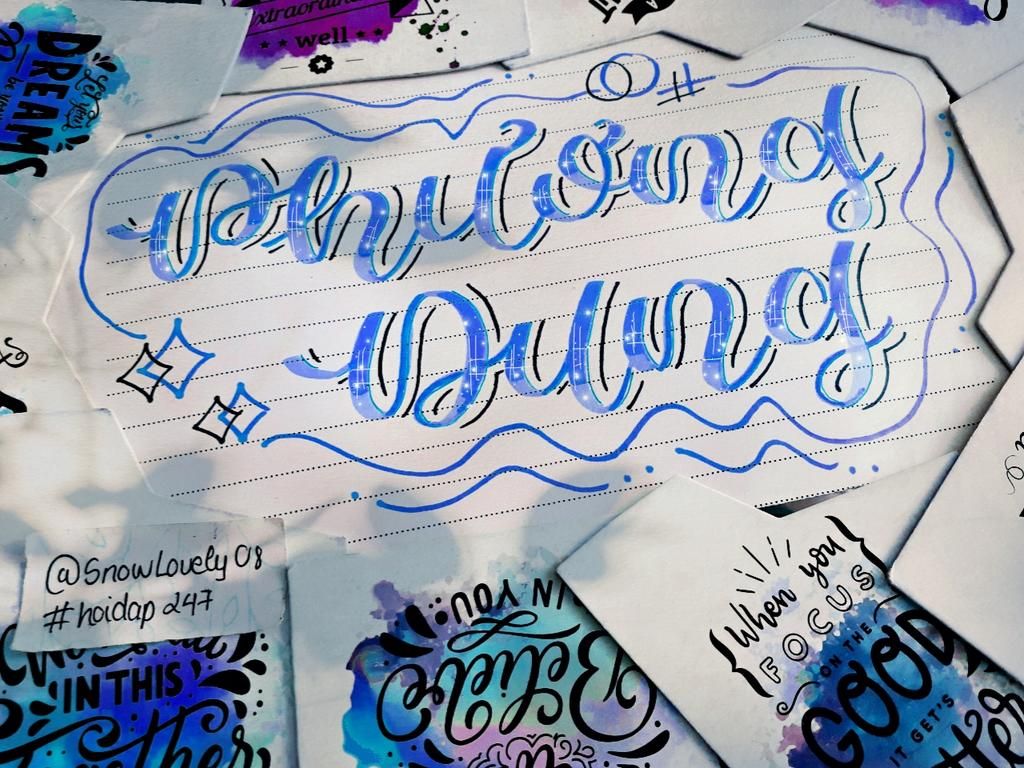 xtraordina
well
Let your
DREAMS
be your
#
Phương
Dung
@SnowLovely 08
#hoidap 247
IN THIS
Together
Believe
IN YOU
{When you}
FOCUS
ON THE
GOOD
IT GET'S